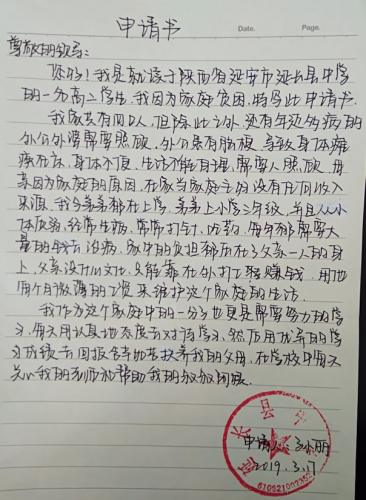 申请书
Date. Page.
尊敬的领导:
您好!我是就读于陕西省延安市延长县中学
的一名高二学生,我因为家庭贫困,特写此申请书.
我家共有四口人,但除此之外,还有年迈多病的
外公外婆需要照顾,外公患有脑梗,导致身体瘫
痪在床,身体不便,生活不能自理,需要人照顾,母
亲因为家庭的原因,在家当家庭主妇没有任何收入
来源,我今弟弟都在上学,弟弟上小学三年级,并且从小
体质弱,经常生病,常常打针、吃药,每年都需要大
量的钱去治病,家中的负担都历在了父亲一人的身
上,父亲没什么文化,只能靠在外打工来赚钱,用他
每个月微薄的工资来维护这个家庭的生活.
我作为这个家庭中的一分子也更是需要努力的学
习,每天用认真地态度去对待学习,然后用优异的学
习成绩去回报含辛如苦扶养我的父母,在学校中每天
关心我的老师和帮助我的叔叔阿姨.
申请人:
2019.3.17